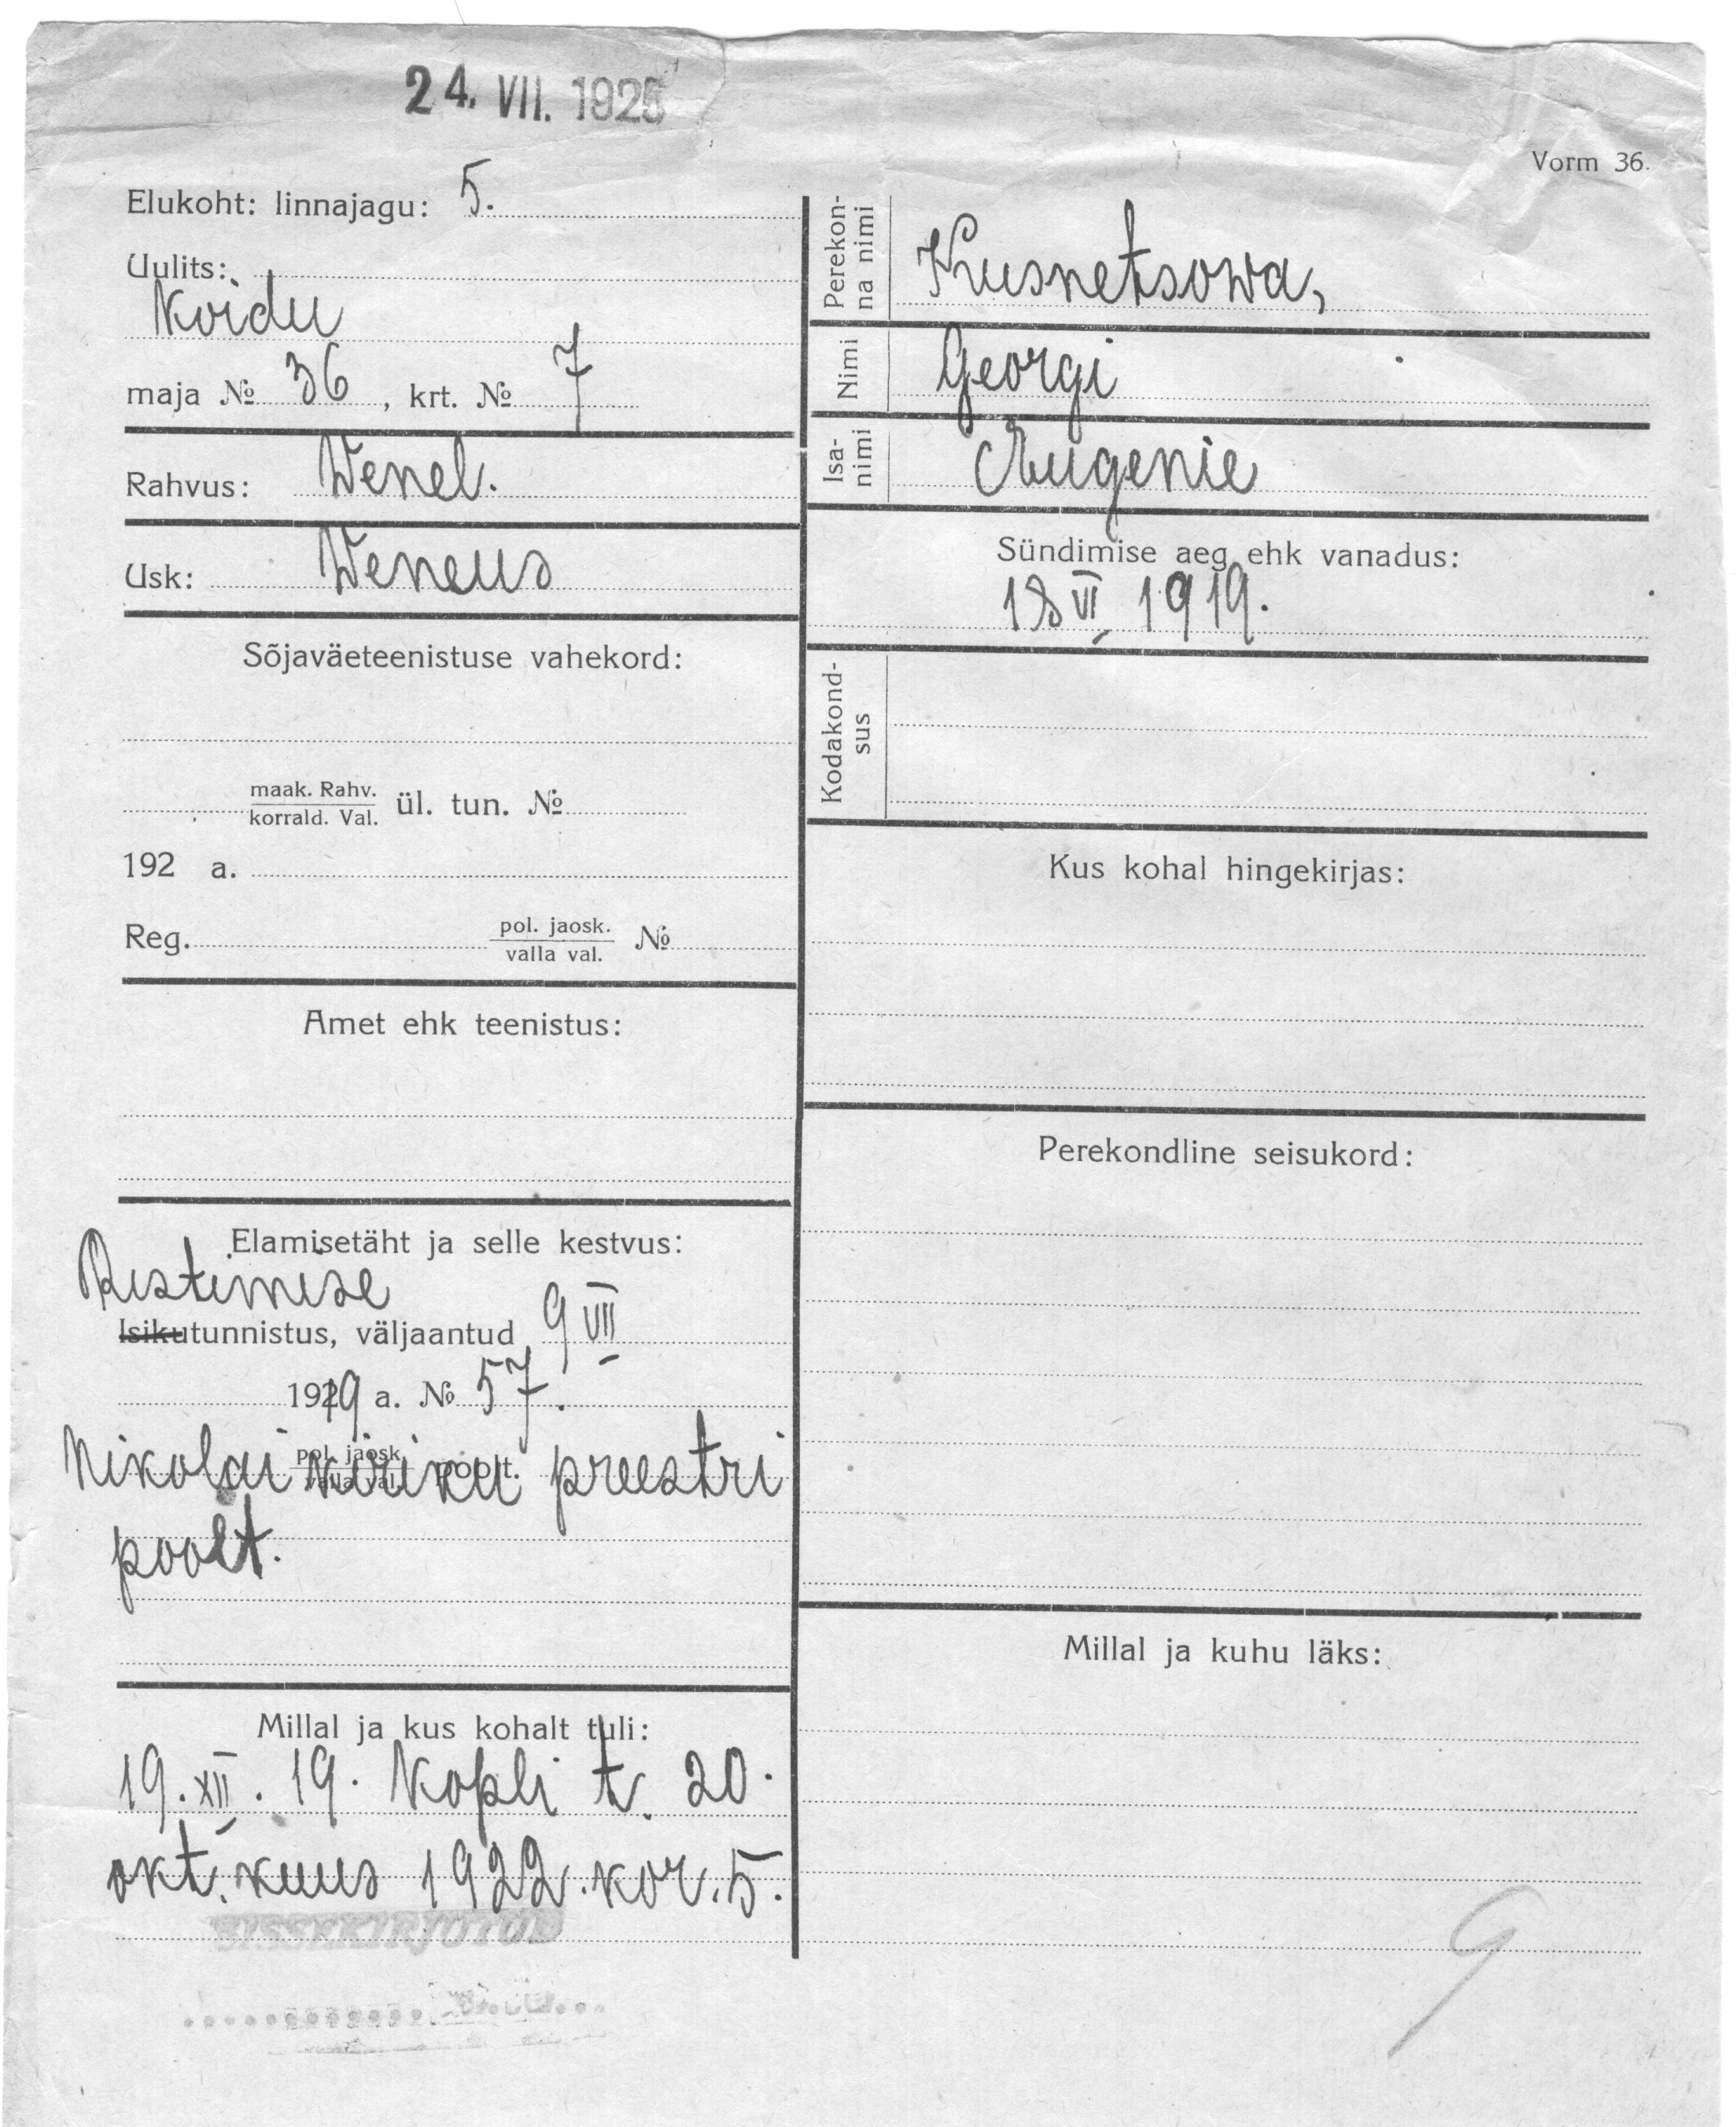 24. VII. 1925
Vorm 36.
Elukoht: linnajagu: 5.
Uulits:
Koidu
maja № 36, krt. № 7
Rahvus: Wenel.
Usk: Weneus
Sõjaväeteenistuse vahekord:
maak. Rahv.
korrald. Val. ül. tun. №
192 a.
Reg. pol. jaosk.
valla val. №
Amet ehk teenistus:
Elamisetäht ja selle kestvus:
Ristimise
Isikutunnistus, väljaantud 9 VII
1919 a. № 57.
pol. jaosk.
valla val. poolt.
Nikolai kiriku preestri
poolt.
Millal ja kus kohalt tuli:
19. XII. 19. Kopli t. 20.
okt. kuus 1922. kor. 5.
SISSEKIRJUTUD
Perekon-
na nimi Kusnetsowa,
Nimi Georgi
Isa-
nimi Eugenie
Sündimise aeg ehk vanadus:
18 VI 1919.
Kodakond-
sus
Kus kohal hingekirjas:
Perekondline seisukord:
Millal ja kuhu läks:
9